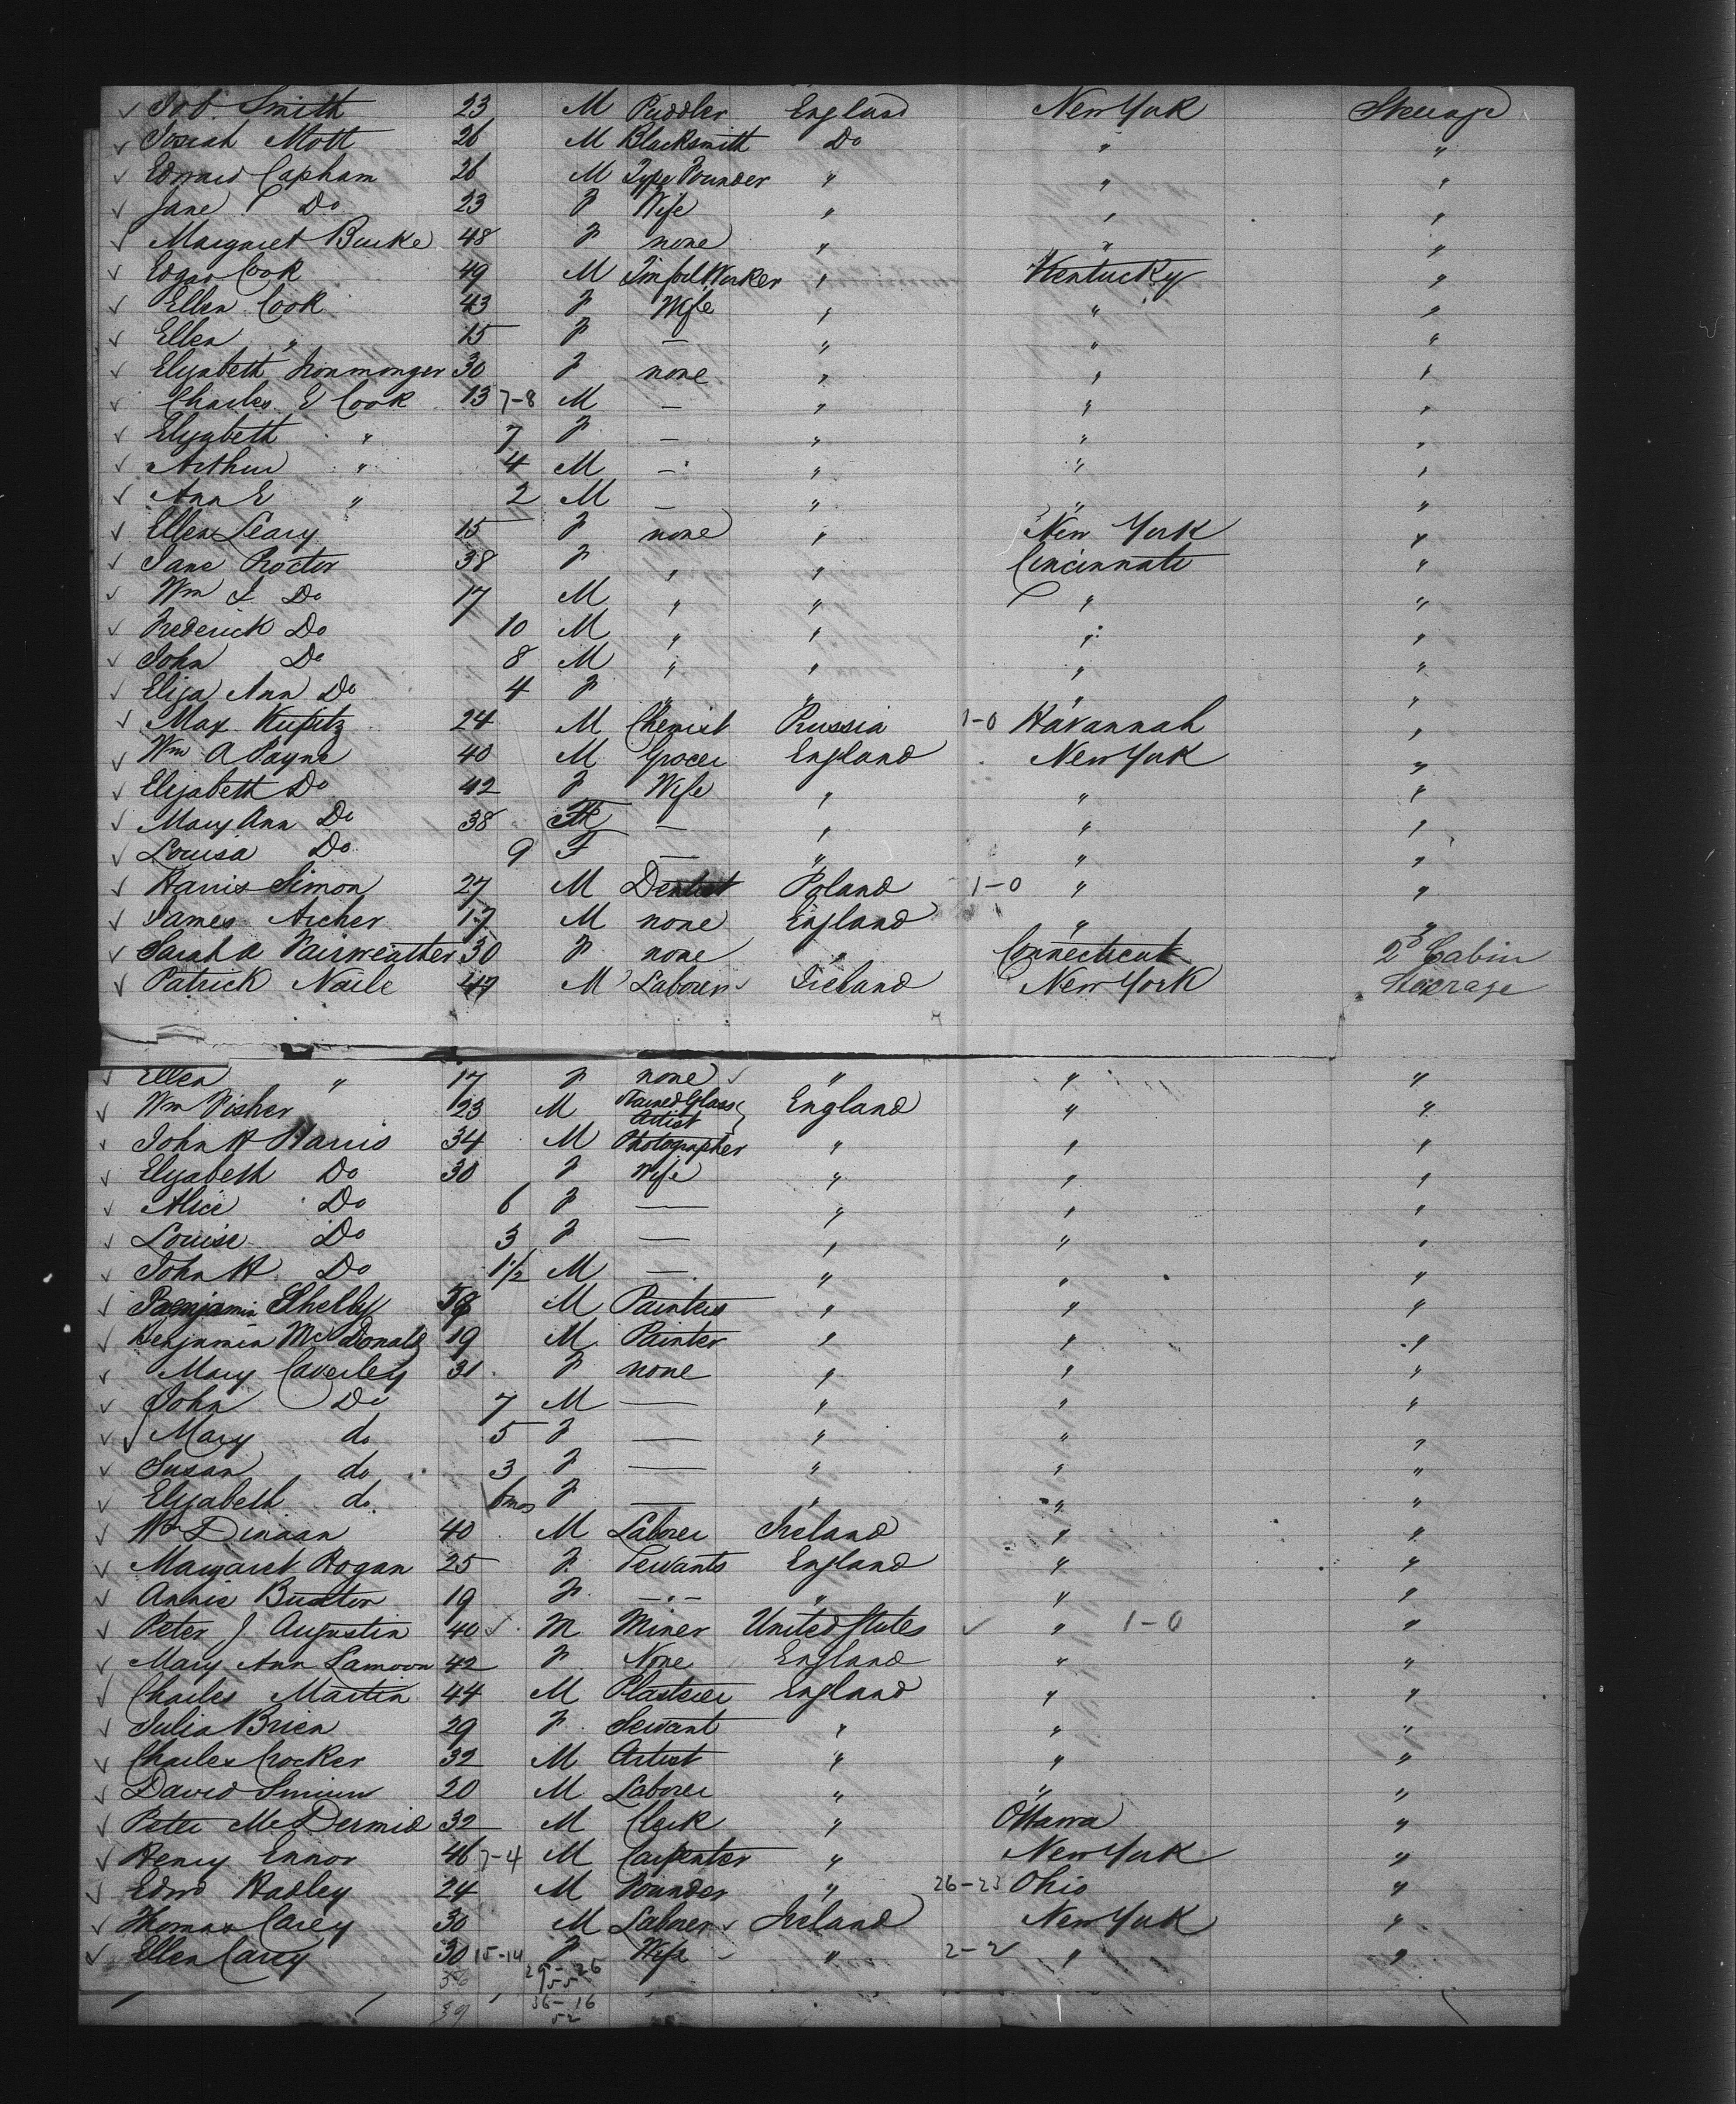 ✓ Job. Smith 23 M Puddler England New York Steerage
✓ Josiah Mott 26 M Blacksmith Do " "
✓ Edward Capham 26 M Type Founder " " "
✓ Jane Do 23 F Wife " " "
✓ Margaret Burke 48 F none " " "
✓ Edgar Cook 49 M Tinfoil Worker " Kentucky "
✓ Ellen Cook 43 F Wife " " "
✓ Ellen " 15 F — " " "
✓ Elizabeth Ironmonger 30 F none " " "
✓ Charles E Cook 13 7-8 M — " " "
✓ Elizabeth " 7 F — " " "
✓ Arthur " 4 M — " " "
✓ Ann E " 2 M — " " "
✓ Ellen Leary 15 F none " New York "
✓ Jane Proctor 38 F " " Cincinnati "
✓ Wm Do 17 M " " " "
✓ Frederick Do 10 M " " " "
✓ John Do 8 M " " " "
✓ Eliza Ann Do 4 F " " " "
✓ Max Kupitz 24 M Chemist Prussia 1-0 Havannah "
✓ Wm A Payne 40 M Grocer England New York "
✓ Elizabeth Do 42 F Wife " " "
✓ Mary Ann Do 38 F — " " "
✓ Louisa Do 9 F — " " "
✓ Harris Simon 27 M Dentist Poland 1-0 " "
✓ James Archer 17 M none England " "
✓ Sarah A Fairweather 30 F none " Connecticut 2d Cabin
✓ Patrick Naile M Laborer ✓ Ireland New York Steerage
✓ Ellen " 17 F none ✓ " " "
✓ Wm Fisher 23 M Stained Glass Artist England " "
✓ John H Harris 34 M Photographer " " "
✓ Elizabeth Do 30 F Wife " " "
✓ Alice Do 6 F — " " "
✓ Louise Do 3 F — " " "
✓ John H. Do 1½ M — " " "
✓ Benjamin Shelby M Painters " " "
✓ Benjamin McDonald 19 M Painter " " "
✓ Mary Caverley 31 F none " " "
✓ John Do 7 M — " " "
✓ Mary do 5 F — " " "
✓ Susan do 3 F — " " "
✓ Elizabeth do. 6 mos F — " " "
✓ Wm Dinaan 40 M Laborer Ireland " "
✓ Margaret Hogan 25 F Servants England " "
✓ Annie Buxton 19 F — " — " " "
✓ Peter J Augustin 40 ✓ M Miner United States ✓ " 1-0 "
✓ Mary Ann Lamoon 42 F None England " "
✓ Charles Martin 44 M Plasterer England " "
✓ Julia Brien 29 F Servant " " "
✓ Charles Crocker 32 M Artist " " "
✓ David 20 M Laborer " " "
✓ Peter McDermid 32 M Clerk " Ottawa "
✓ Henry Ennor 46 7-4 M Carpenter " New York "
✓ Edwd Hadley 24 M Founder " 26-23 Ohio "
✓ Thomas Carey 30 M Laborer ✓ Ireland New York "
✓ Ellen Carey 30 15-14 F Wife " 2-2 " "
36 29-26
55
39 36-16
52